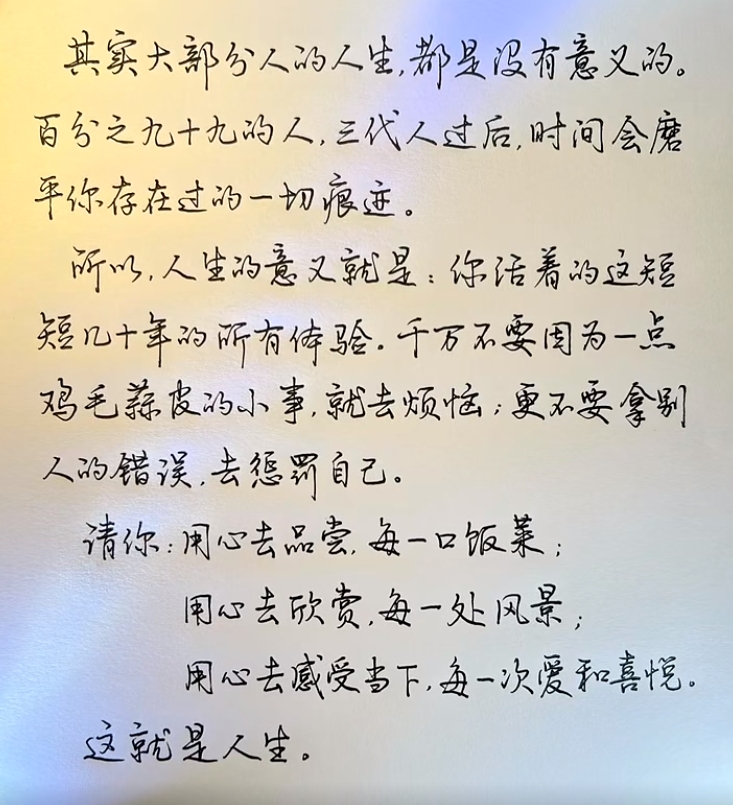 其实大部分人的人生,都是没有意义的。
百分之九十九的人,三代人过后,时间会磨
平你存在过的一切痕迹。
所以,人生的意义就是:你活着的这短
短几十年的所有体验。千万不要因为一点
鸡毛蒜皮的小事,就去烦恼;更不要拿别
人的错误,去惩罚自己。
请你:用心去品尝,每一口饭菜;
用心去欣赏,每一处风景;
用心去感受当下,每一次爱和喜悦。
这就是人生。